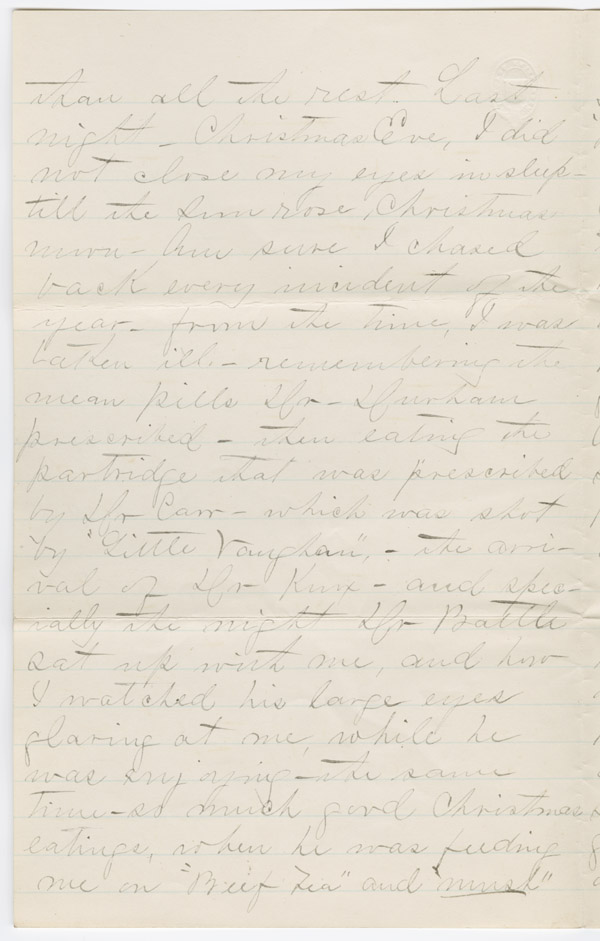 than all the rest. Last
night - Christmas Eve, I did
not close my eyes in sleep -
till the sun rose, Christmas
morn - Am sure I chased
back every incident of the
year - from the time, I was
taken ill - remembering the
mean pills Dr - Durham
prescribed - then eating the
partridge that was prescribed
by Dr Carr - which was shot
by "Little Vaughan", - the arri-
val of Dr Knox - and spec-
ially the night Dr Battle
sat up with me, and how
I watched his large eyes
glaring at me, while he
was enjoying - the same
time - so much good Christmas
eatings, when he was feeding
me on "Beef Tea" and "mush"